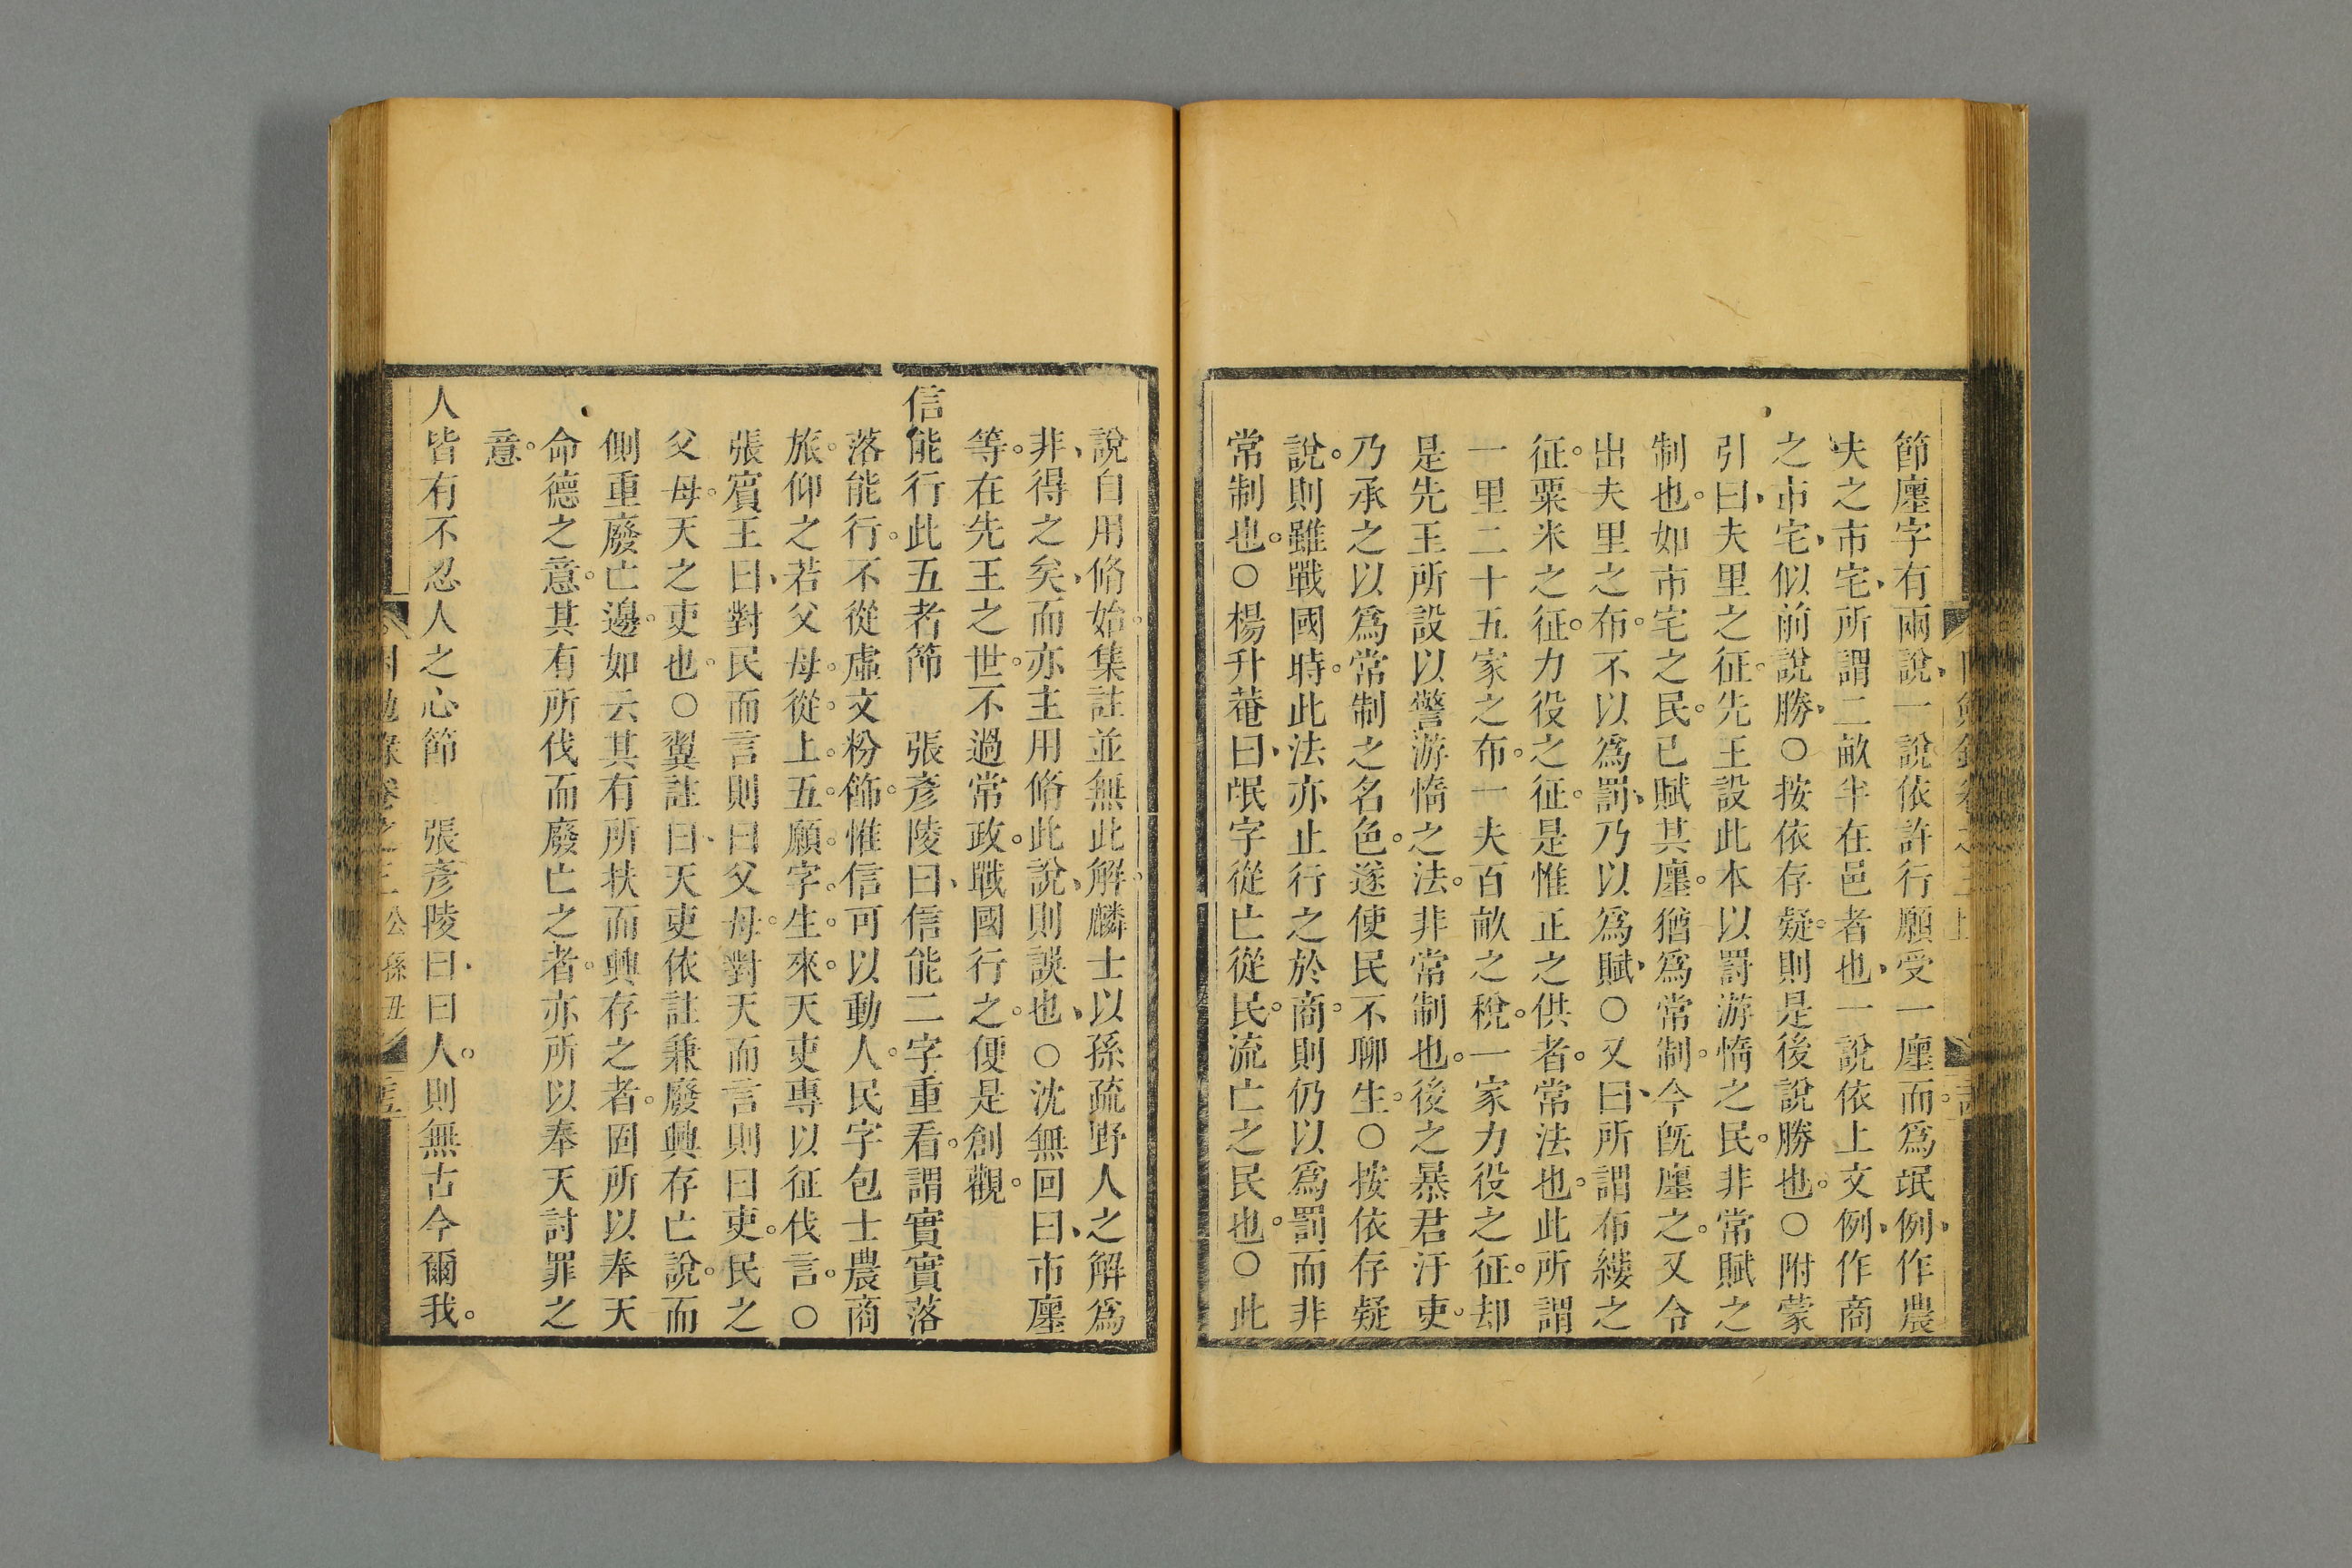 節廛字有兩說、一說依許行願受一廛而。爲氓例、作農
夫之市宅、所謂二畝半在邑者也、一說依上文例、作商
之市宅、似前說勝、○按依存疑。則是後說勝也。○附蒙
引曰、夫里之征。先王設此本以罰游惰之民。非常賦之
制也。如市宅之民。已賦其廛。猶爲常制。今旣廛之。又令
出夫里之布。不以爲罰、乃以爲賦、○又曰、所謂布縷之
征。粟米之征。力役之征。是惟正之供者。常法也。此所謂
一里二十五家之布。一夫百畝之稅。一家力役之征。却
是先王所設以警游惰之法。非常制也。後之暴君汙吏。
乃承之以爲常制之名色。遂使民不聊生。○按依存疑
說。則雖戰國時。此法亦止行之於商。則仍以爲罰而非
常制也。○楊升菴曰、氓字從亡從民。流亡之民也。○此
說自用脩始。集註並無此解。麟士以孫疏野人之解爲
非、得之矣、而亦主用脩此說、則誤也、○沈無回曰、市廛
等。在先王之世。不過常政。戰國行之。便是創觀。
信能行此五者節 張彥陵曰、信能二字重看。謂實實落
落能行。不從虛文粉飾。惟信可以動人。民字包士農商
旅。仰之若父母。從。上。五。願。字。生。來。天吏專以征伐言。○
張賓王曰、對民而言則曰父母。對天而言則曰吏。民之
父母。天之吏也。○翼註曰、天吏依註兼廢興存亡說。而
側重廢亡邊。如云其有所扶而興存之者。固所以奉天
命德之意。其有所伐而廢亡之者。亦所以奉天討罪之
意。
人皆有不忍人之心節 張彥陵曰、曰人。則無古今爾我。
困勉錄卷之三 公孫丑